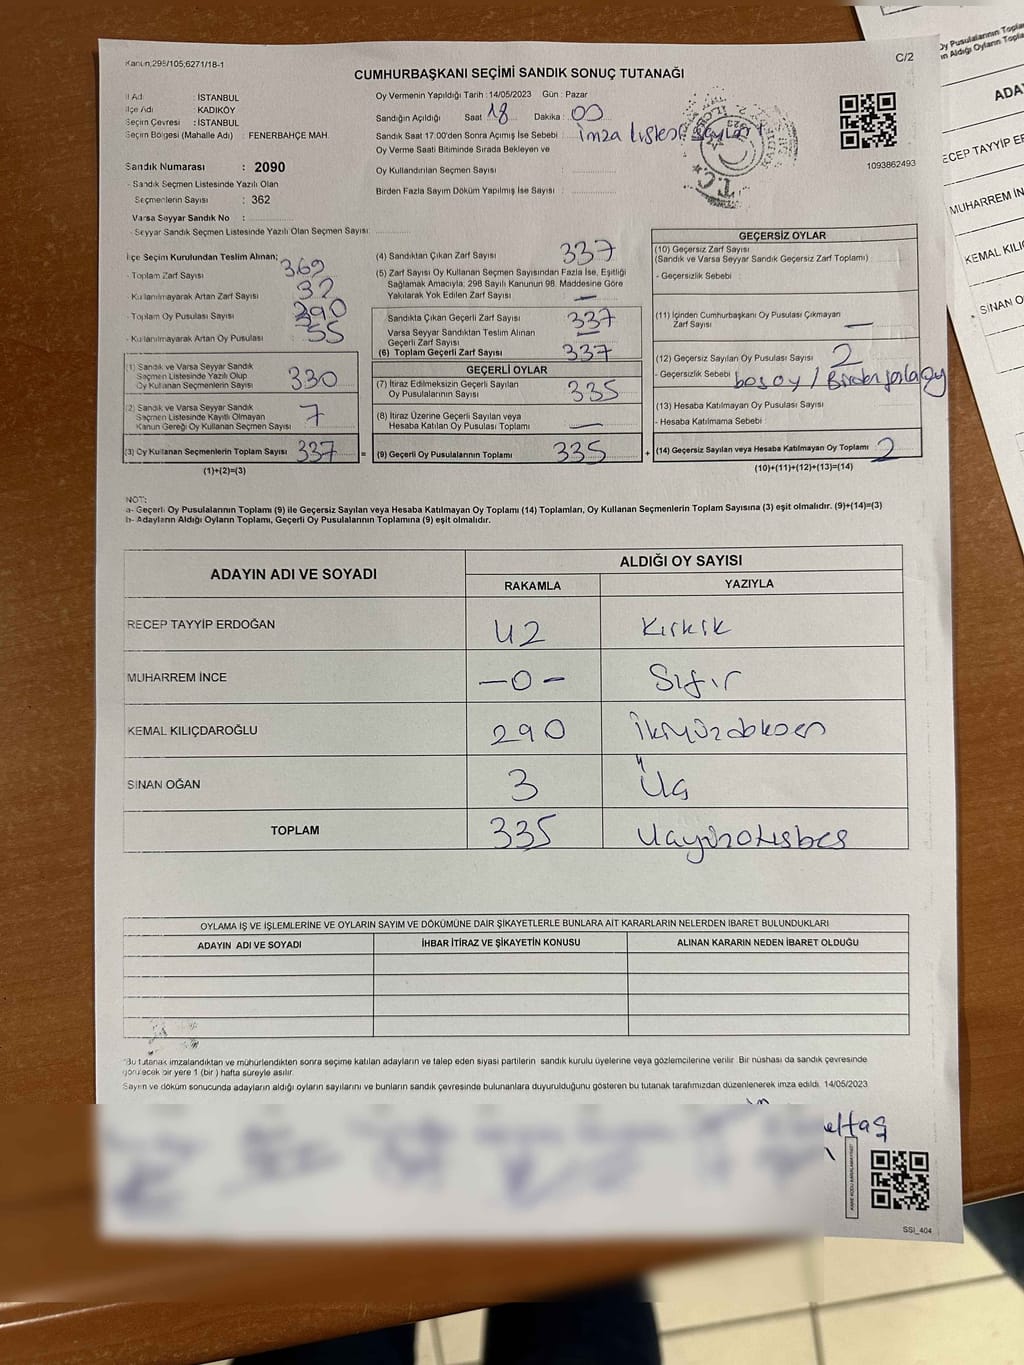 Kanun;298/105;6271/18-1
C/2
CUMHURBAŞKANI SEÇİMİ SANDIK SONUÇ TUTANAĞI
İl Adı : İSTANBUL
İlçe Adı : KADIKÖY
Seçim Çevresi : İSTANBUL
Seçim Bölgesi (Mahalle Adı) : FENERBAHÇE MAH.
Sandık Numarası : 2090
- Sandık Seçmen Listesinde Yazılı Olan
Seçmenlerin Sayısı : 362
Varsa Seyyar Sandık No :
- Seyyar Sandık Seçmen Listesinde Yazılı Olan Seçmen Sayısı:
Oy Vermenin Yapıldığı Tarih :14/05/2023 Gün : Pazar
Sandığın Açıldığı Saat 18 Dakika : 00
Sandık Saat 17.00'den Sonra Açımış İse Sebebi : İmza listesi
Oy Verme Saati Bitiminde Sırada Bekleyen ve
Oy Kullandırılan Seçmen Sayısı :
Birden Fazla Sayım Döküm Yapılmış İse Sayısı :
T.C.
1093862493
İlçe Seçim Kurulundan Teslim Alınan;
- Toplam Zarf Sayısı : 369
- Kullanılmayarak Artan Zarf Sayısı : 32
- Toplam Oy Pusulası Sayısı : 390
- Kullanılmayarak Artan Oy Pusulası : 55
(1) Sandık ve Varsa Seyyar Sandık
Seçmen Listesinde Yazılı Olup
Oy Kullanan Seçmenlerin Sayısı : 330
(2) Sandık ve Varsa Seyyar Sandık
Seçmen Listesinde Kayıtlı Olmayan
Kanun Gereği Oy Kullanan Seçmen Sayısı : 7
(3) Oy Kullanan Seçmenlerin Toplam Sayısı : 337
(1)+(2)=(3)
(4) Sandıktan Çıkan Zarf Sayısı : 337
(5) Zarf Sayısı Oy Kullanan Seçmen Sayısından Fazla İse, Eşitliği
Sağlamak Amacıyla; 298 Sayılı Kanunun 98. Maddesine Göre
Yakılarak Yok Edilen Zarf Sayısı : —
Sandıkta Çıkan Geçerli Zarf Sayısı : 337
Varsa Seyyar Sandıktan Teslim Alınan
Geçerli Zarf Sayısı : —
(6) Toplam Geçerli Zarf Sayısı : 337
GEÇERLİ OYLAR
(7) İtiraz Edilmeksizin Geçerli Sayılan
Oy Pusulalarının Sayısı : 335
(8) İtiraz Üzerine Geçerli Sayılan veya
Hesaba Katılan Oy Pusulası Toplamı : —
(9) Geçerli Oy Pusulalarının Toplamı : 335
GEÇERSİZ OYLAR
(10) Geçersiz Zarf Sayısı
(Sandık ve Varsa Seyyar Sandık Geçersiz Zarf Toplamı) :
- Geçersizlik Sebebi :
(11) İçinden Cumhurbaşkanı Oy Pusulası Çıkmayan
Zarf Sayısı : —
(12) Geçersiz Sayılan Oy Pusulası Sayısı : 2
- Geçersizlik Sebebi : boş oy / Birden fazla oy
(13) Hesaba Katılmayan Oy Pusulası Sayısı :
- Hesaba Katılmama Sebebi :
(14) Geçersiz Sayılan veya Hesaba Katılmayan Oy Toplamı : 2
(10)+(11)+(12)+(13)=(14)
NOT:
a- Geçerli Oy Pusulalarının Toplamı (9) ile Geçersiz Sayılan veya Hesaba Katılmayan Oy Toplamı (14) Toplamları, Oy Kullanan Seçmenlerin Toplam Sayısına (3) eşit olmalıdır. (9)+(14)=(3)
b- Adayların Aldığı Oyların Toplamı, Geçerli Oy Pusulalarının Toplamına (9) eşit olmalıdır.
ADAYIN ADI VE SOYADI
ALDIĞI OY SAYISI
RAKAMLA YAZIYLA
RECEP TAYYİP ERDOĞAN 42 Kırkik
MUHARREM İNCE —0— Sıfır
KEMAL KILIÇDAROĞLU 290 İkiyüzdoksan
SİNAN OĞAN 3 Üç
TOPLAM 335 Üçyüzotuzbeş
OYLAMA İŞ VE İŞLEMLERİNE VE OYLARIN SAYIM VE DÖKÜMÜNE DAİR ŞİKAYETLERLE BUNLARA AİT KARARLARIN NELERDEN İBARET BULUNDUKLARI
ADAYIN ADI VE SOYADI İHBAR İTİRAZ VE ŞİKAYETİN KONUSU ALINAN KARARIN NEDEN İBARET OLDUĞU
"Bu tutanak imzalandıktan ve mühürlendikten sonra seçime katılan adayların ve talep eden siyasi partilerin sandık kurulu üyelerine veya gözlemcilerine verilir. Bir nüshası da sandık çevresinde
görülecek bir yere 1 (bir) hafta süreyle asılır.
Sayım ve döküm sonucunda adayların aldığı oyların sayılarını ve bunların sandık çevresinde bulunanlara duyurulduğunu gösteren bu tutanak tarafımızdan düzenlenerek imza edildi. 14/05/2023
SSI_404
Oy Pusulalarının
Aldığı Oyların
ADA
RECEP TAYYİP
MUHARREM
KEMAL
SİNAN